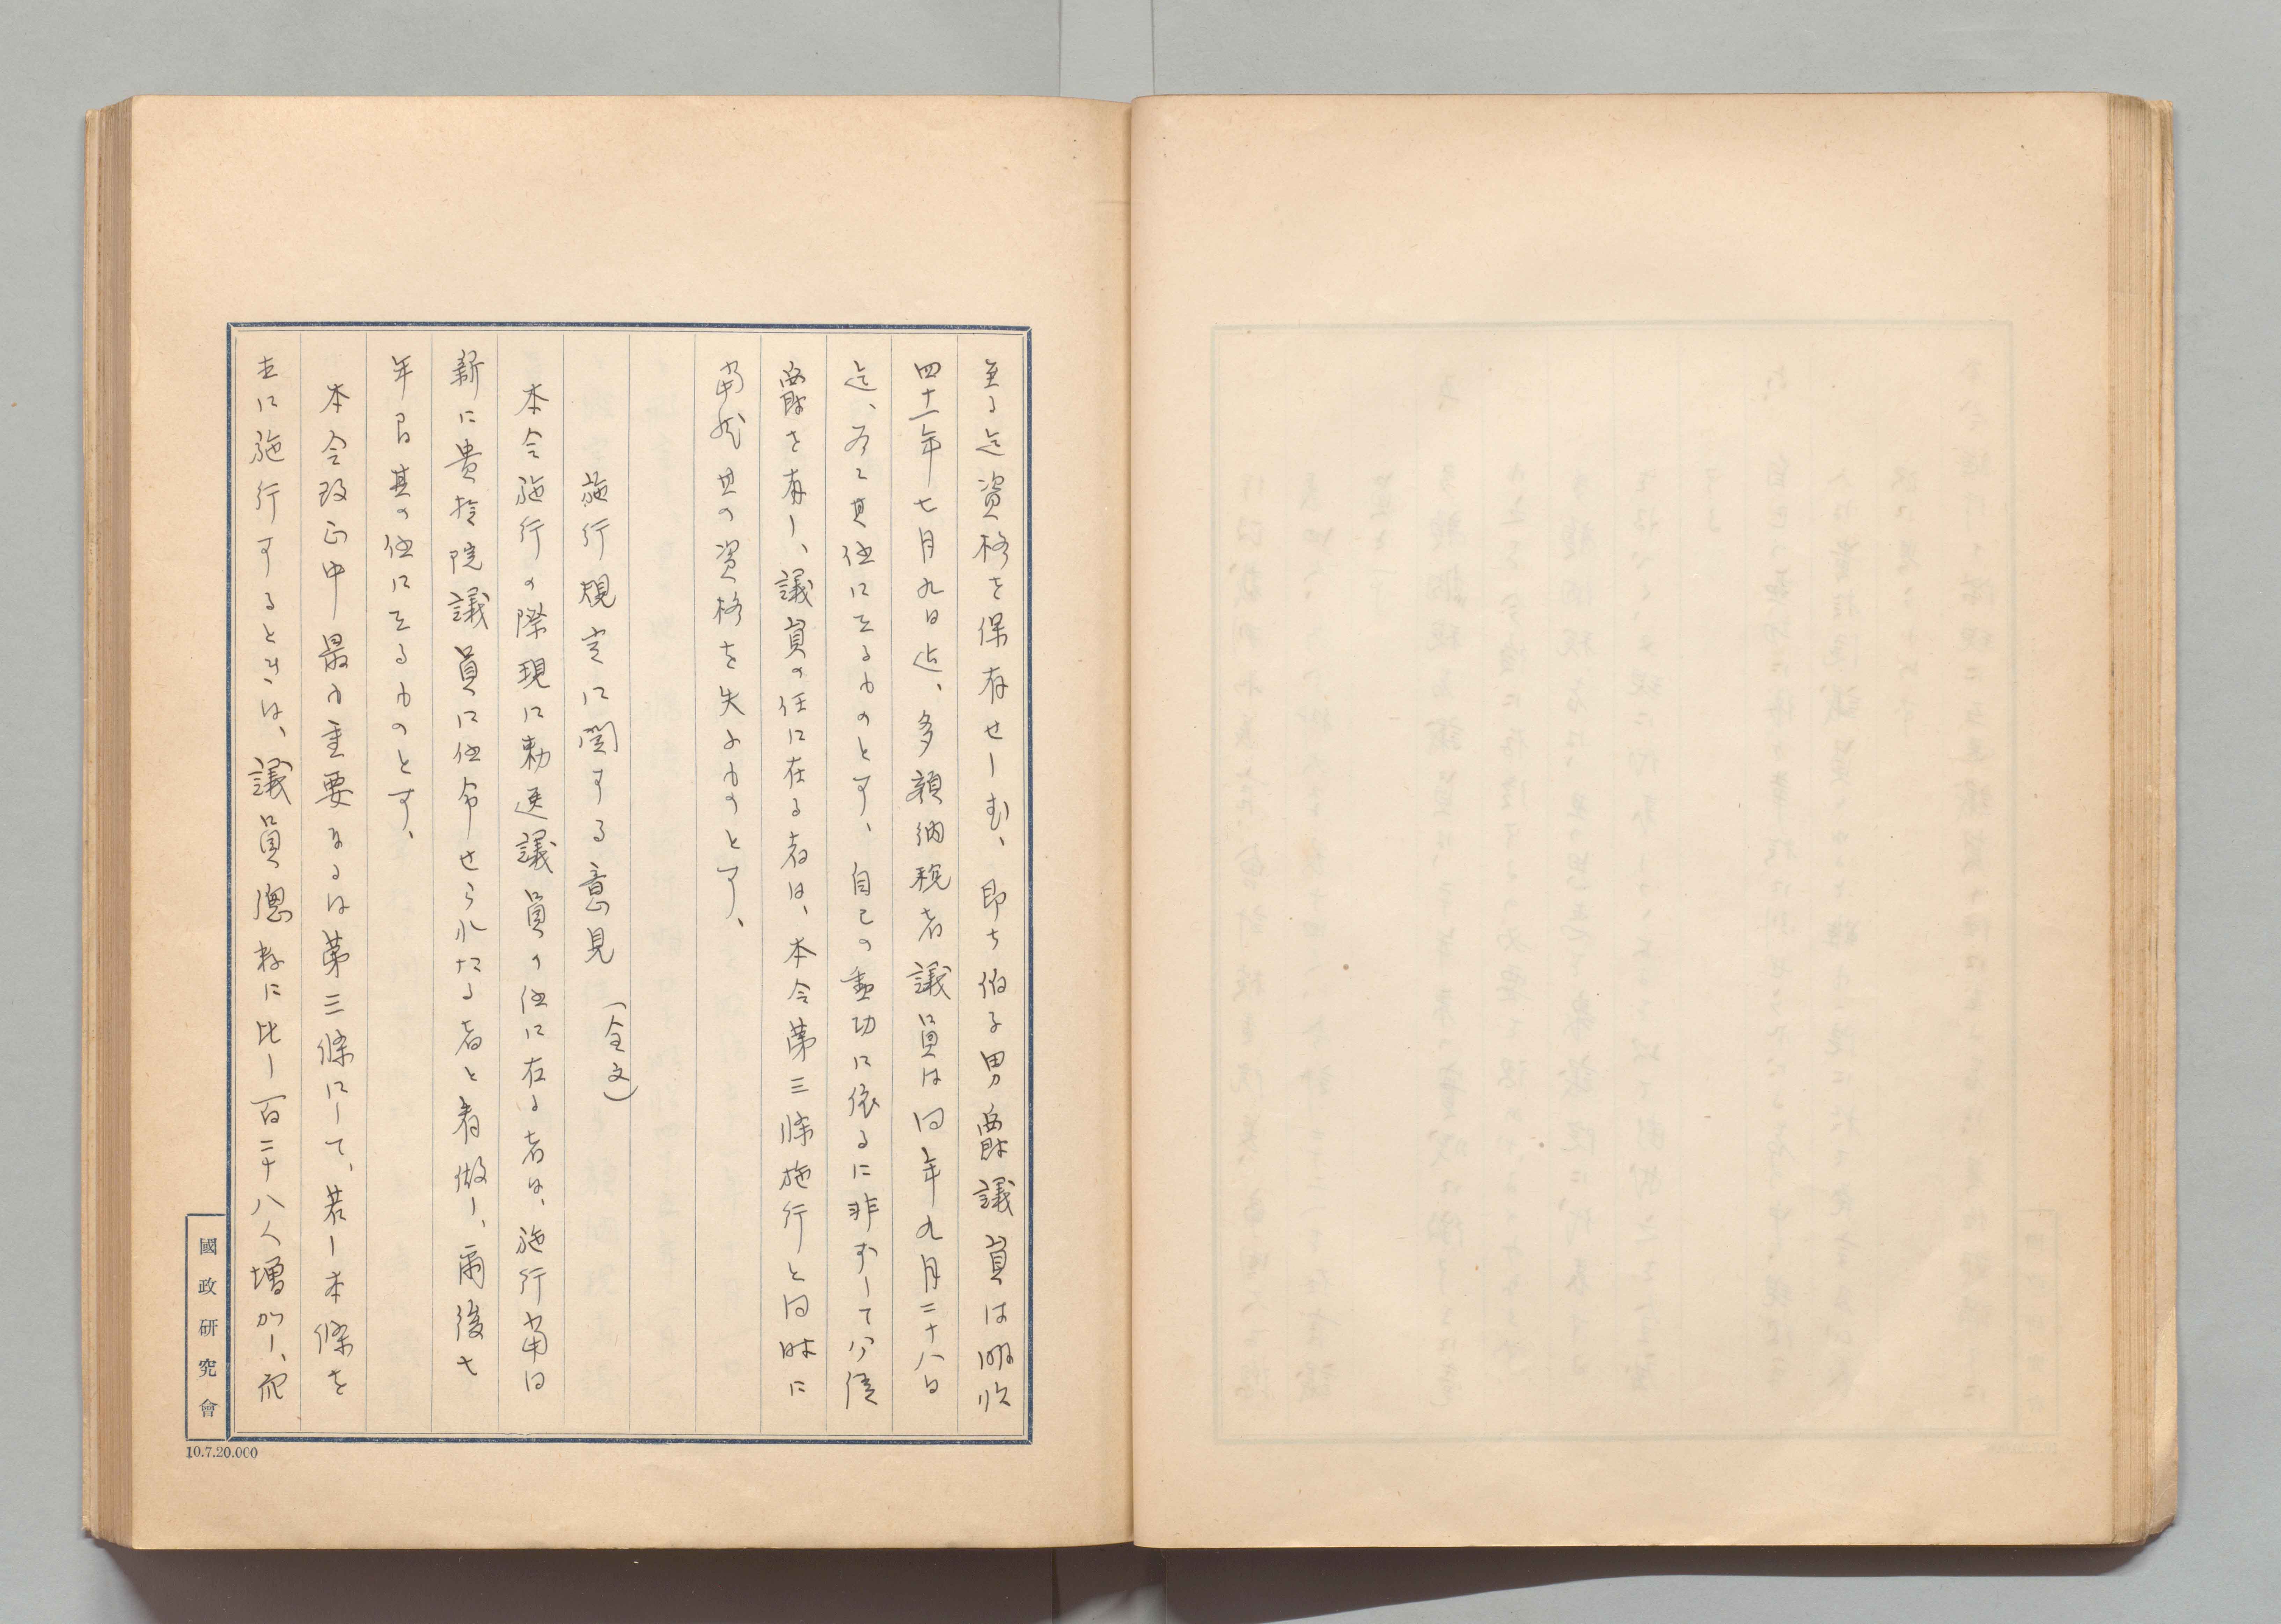 至る迄資格を保有せしむ、即ち伯子男爵議員は明治
四十一年七月九日迄、多額納税者議員は同年九月二十八日
迄、存て其任に在るものとす、自己の勲功に依るに非ずして公侯
爵を有し、議員の任に在る者は、本令第三條施行と同時に
当然其の資格を失ふものとす、
施行規定に関する意見（全文）
本令施行の際現に勅選議員の任に在る者は、施行当日
新に貴族院議員に任命せられたる者と看做し、爾後七
年間其の任に在るものとす、
本令改正中最も重要なるは第三條にして、若し本條を
直に施行するときは、議員總数に比し百二十八人増加し、而
國政研究會
10.7.20.000